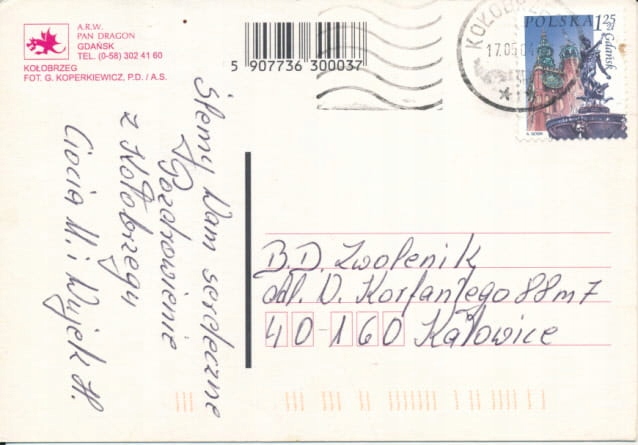 A.R.W.
PAN DRAGON
GDAŃSK
TEL. (0-58) 302 41 60
KOŁOBRZEG
FOT. G. KOPERKIEWICZ, P.D. / A.S.
5 907736 300037
KOŁOBRZEG
17.05.01
POLSKA 1,25 zł
Gdańsk
Ślemy Wam serdeczne
Pozdrowienie
z Kołobrzegu
Ciocia M. i Wujek H.
B.D. Zwolenik
Al. W. Korfantego 88 m 7
40-160 Katowice